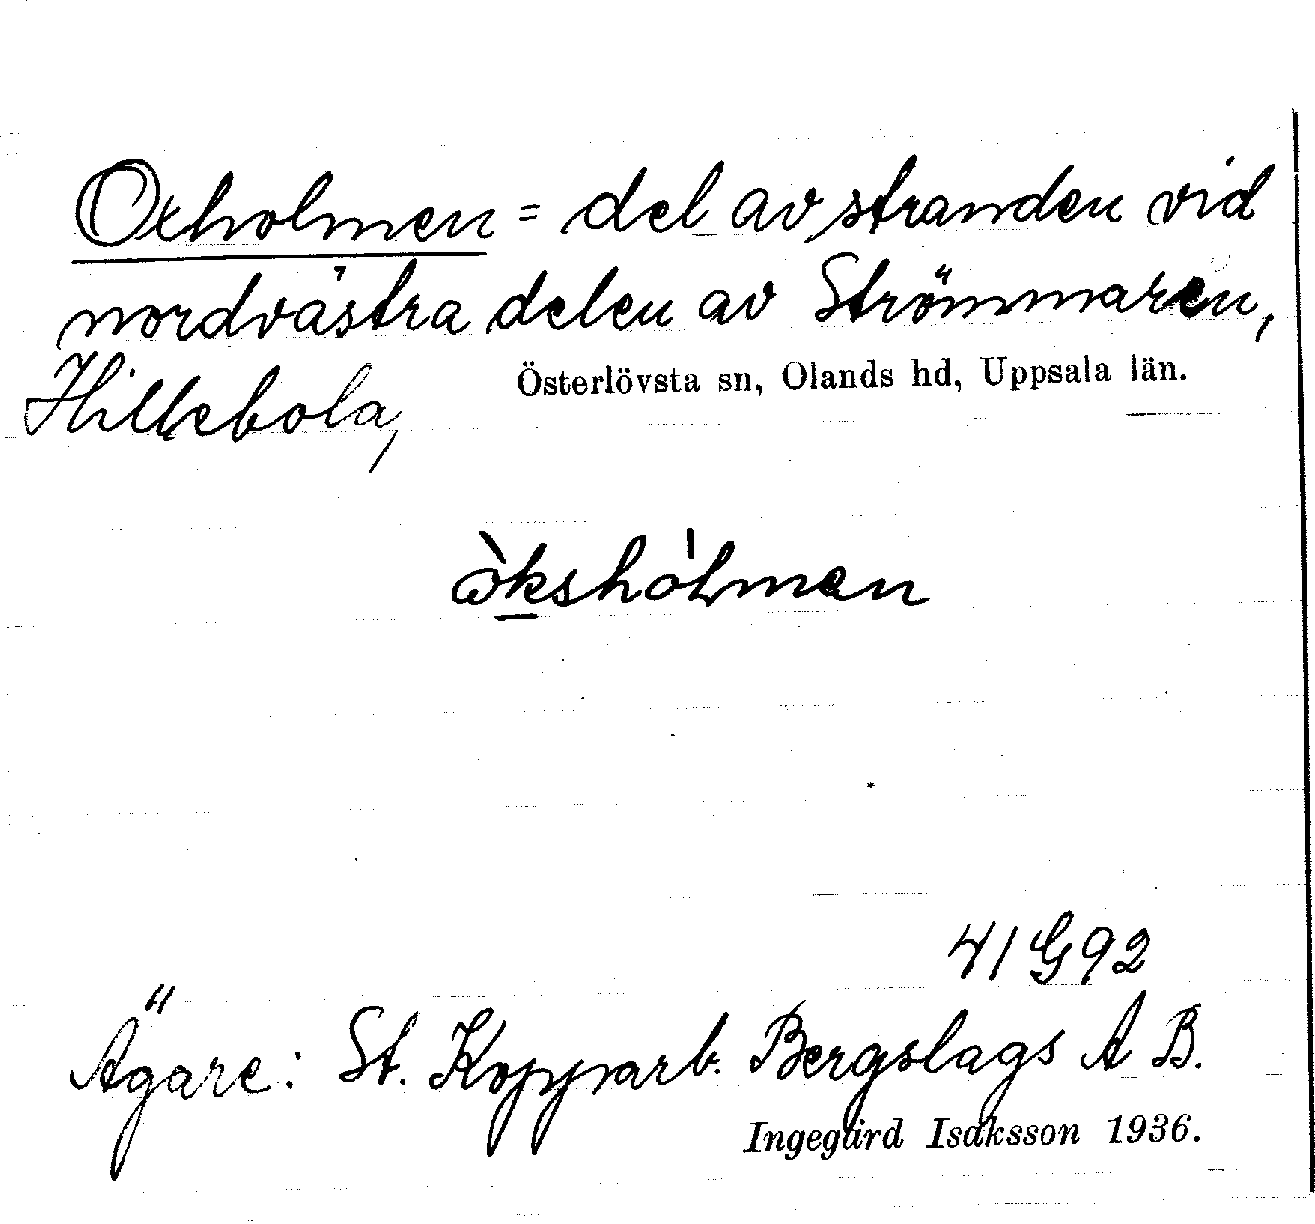 Oxholmen = del av stranden vid
nordvästra delen av Strömmaren,
Hillebola, Österlövsta sn, Olands hd, Uppsala län.
ò̱kshólmen
41 G 92
Ägare: St. Kopparb. Bergslags A B.
Ingegärd Isaksson 1936.